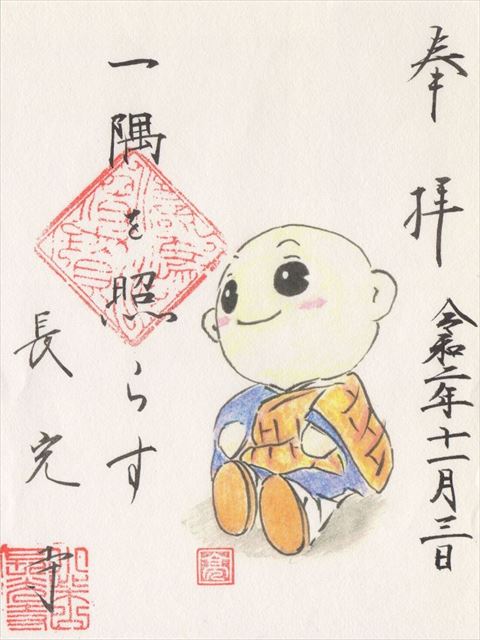 奉拝
令和二年十一月三日
一隅を照らす
長完寺